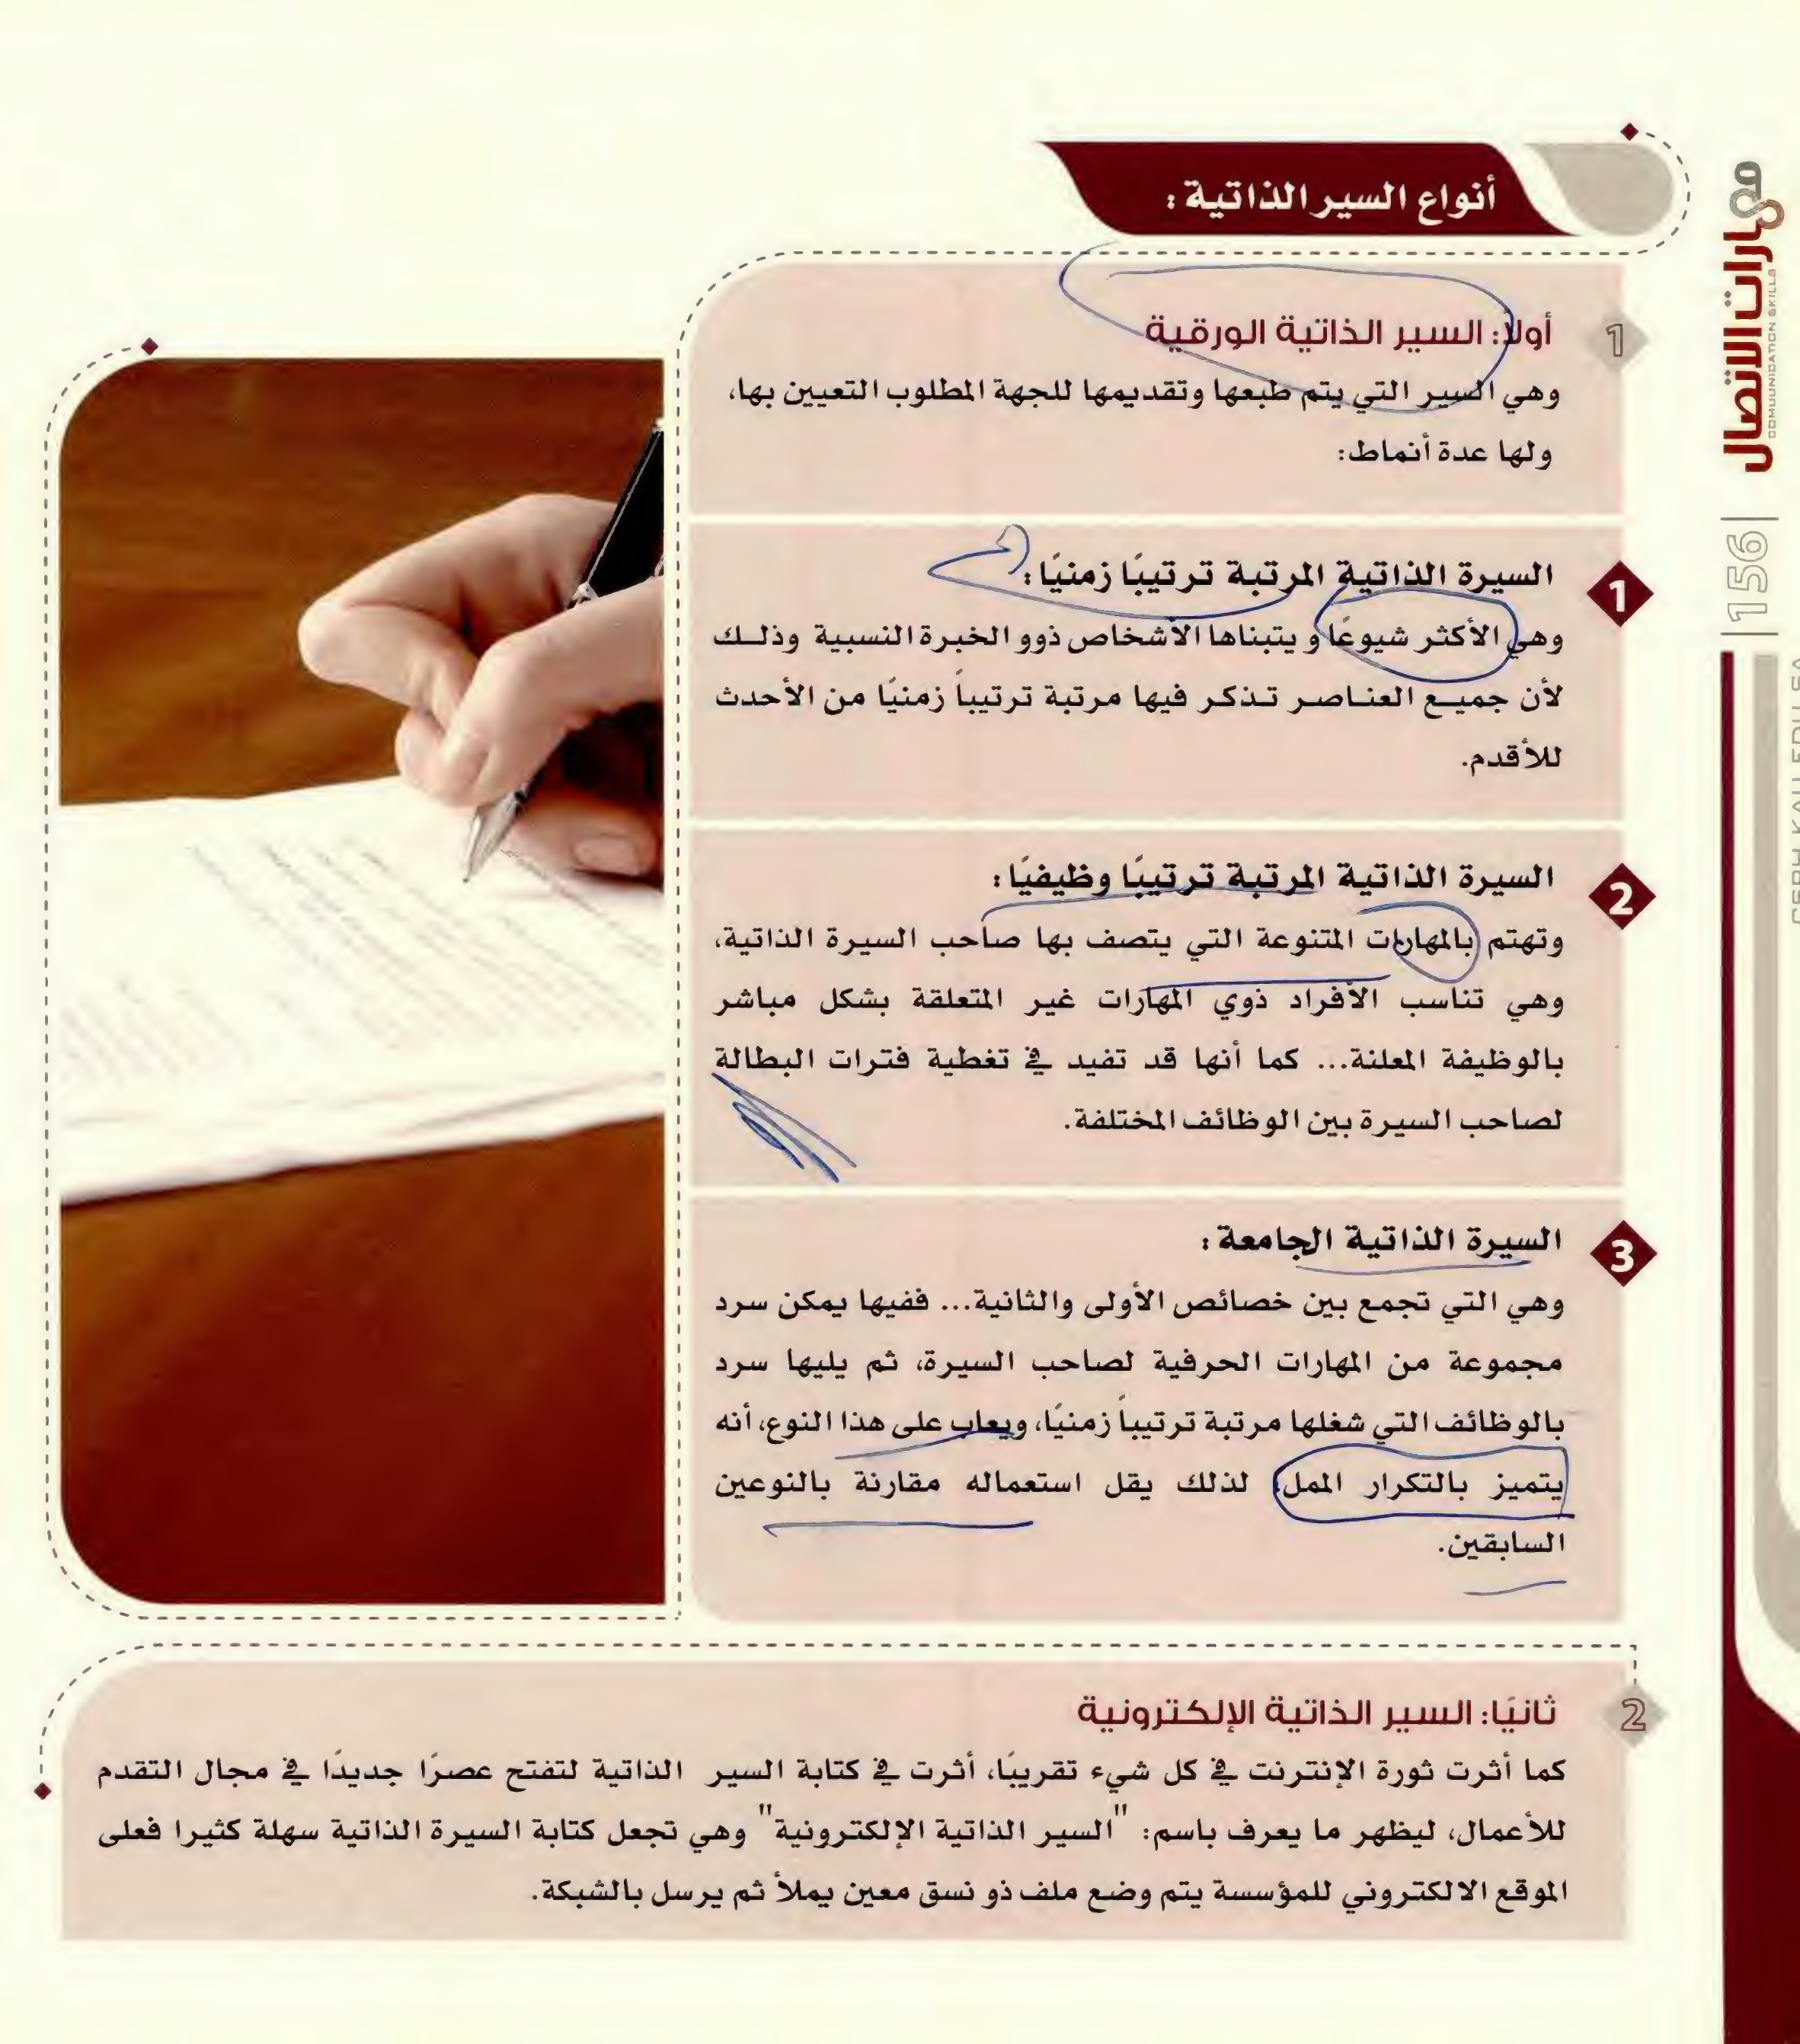 أنواع السير الذاتية :
1
أولا: السير الذاتية الورقية
وهي السير التي يتم طبعها وتقديمها للجهة المطلوب التعيين بها،
ولها عدة أنماط:
1
السيرة الذاتية المرتبة ترتيبًا زمنيًا :
وهي الأكثر شيوعًا و يتبناها الأشخاص ذوو الخبرة النسبية وذلك
لأن جميع العناصر تذكر فيها مرتبة ترتيباً زمنيًا من الأحدث
للأقدم.
2
السيرة الذاتية المرتبة ترتيبًا وظيفيًا :
وتهتم بالمهارات المتنوعة التي يتصف بها صاحب السيرة الذاتية،
وهي تناسب الأفراد ذوي المهارات غير المتعلقة بشكل مباشر
بالوظيفة المعلنة... كما أنها قد تفيد في تغطية فترات البطالة
لصاحب السيرة بين الوظائف المختلفة.
3
السيرة الذاتية الجامعة :
وهي التي تجمع بين خصائص الأولى والثانية... ففيها يمكن سرد
مجموعة من المهارات الحرفية لصاحب السيرة، ثم يليها سرد
بالوظائف التي شغلها مرتبة ترتيباً زمنيًا، ويعاب على هذا النوع، أنه
يتميز بالتكرار الممل، لذلك يقل استعماله مقارنة بالنوعين
السابقين.
2
ثانيًا: السير الذاتية الإلكترونية
كما أثرت ثورة الإنترنت في كل شيء تقريبًا، أثرت في كتابة السير الذاتية لتفتح عصرًا جديدًا في مجال التقدم
للأعمال، ليظهر ما يعرف باسم: "السير الذاتية الإلكترونية" وهي تجعل كتابة السيرة الذاتية سهلة كثيرا فعلى
الموقع الالكتروني للمؤسسة يتم وضع ملف ذو نسق معين يملأ ثم يرسل بالشبكة.
مهارات الاتصال
COMUUNICATION SKILLS
|156|